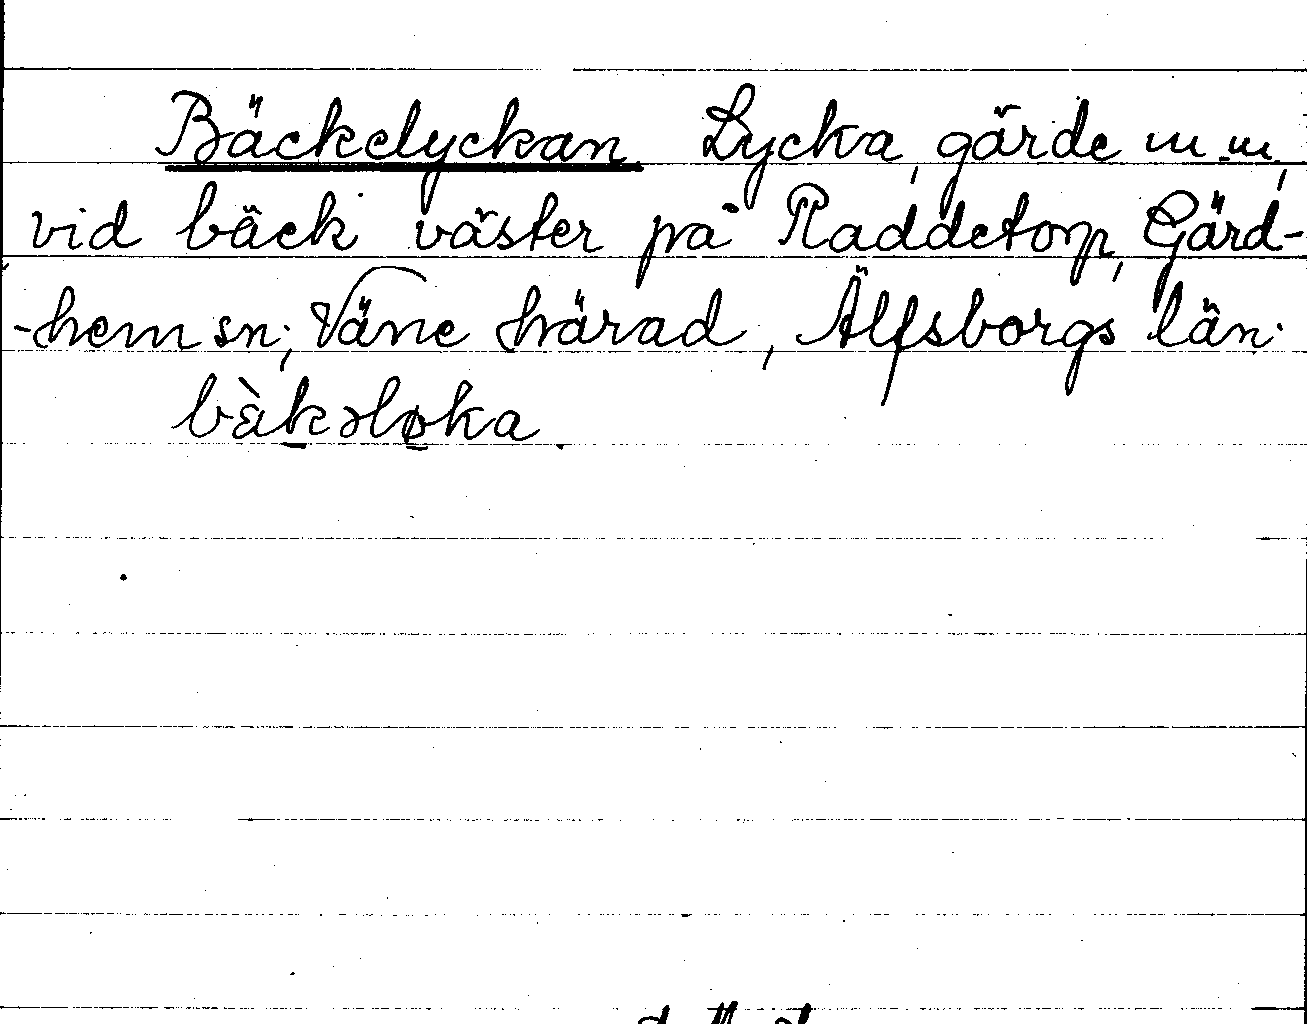 Bäckelyckan Lycka, gärde m.m,
vid bäck väster på Raddetorp, Gärd-
-hem sn; Väne härad, Älfsborgs län.
bɛ̀kəløka.